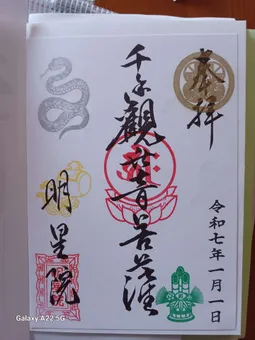 奉拝
千手観世音菩薩
明星院
令和七年一月一日
Galaxy A22 5G